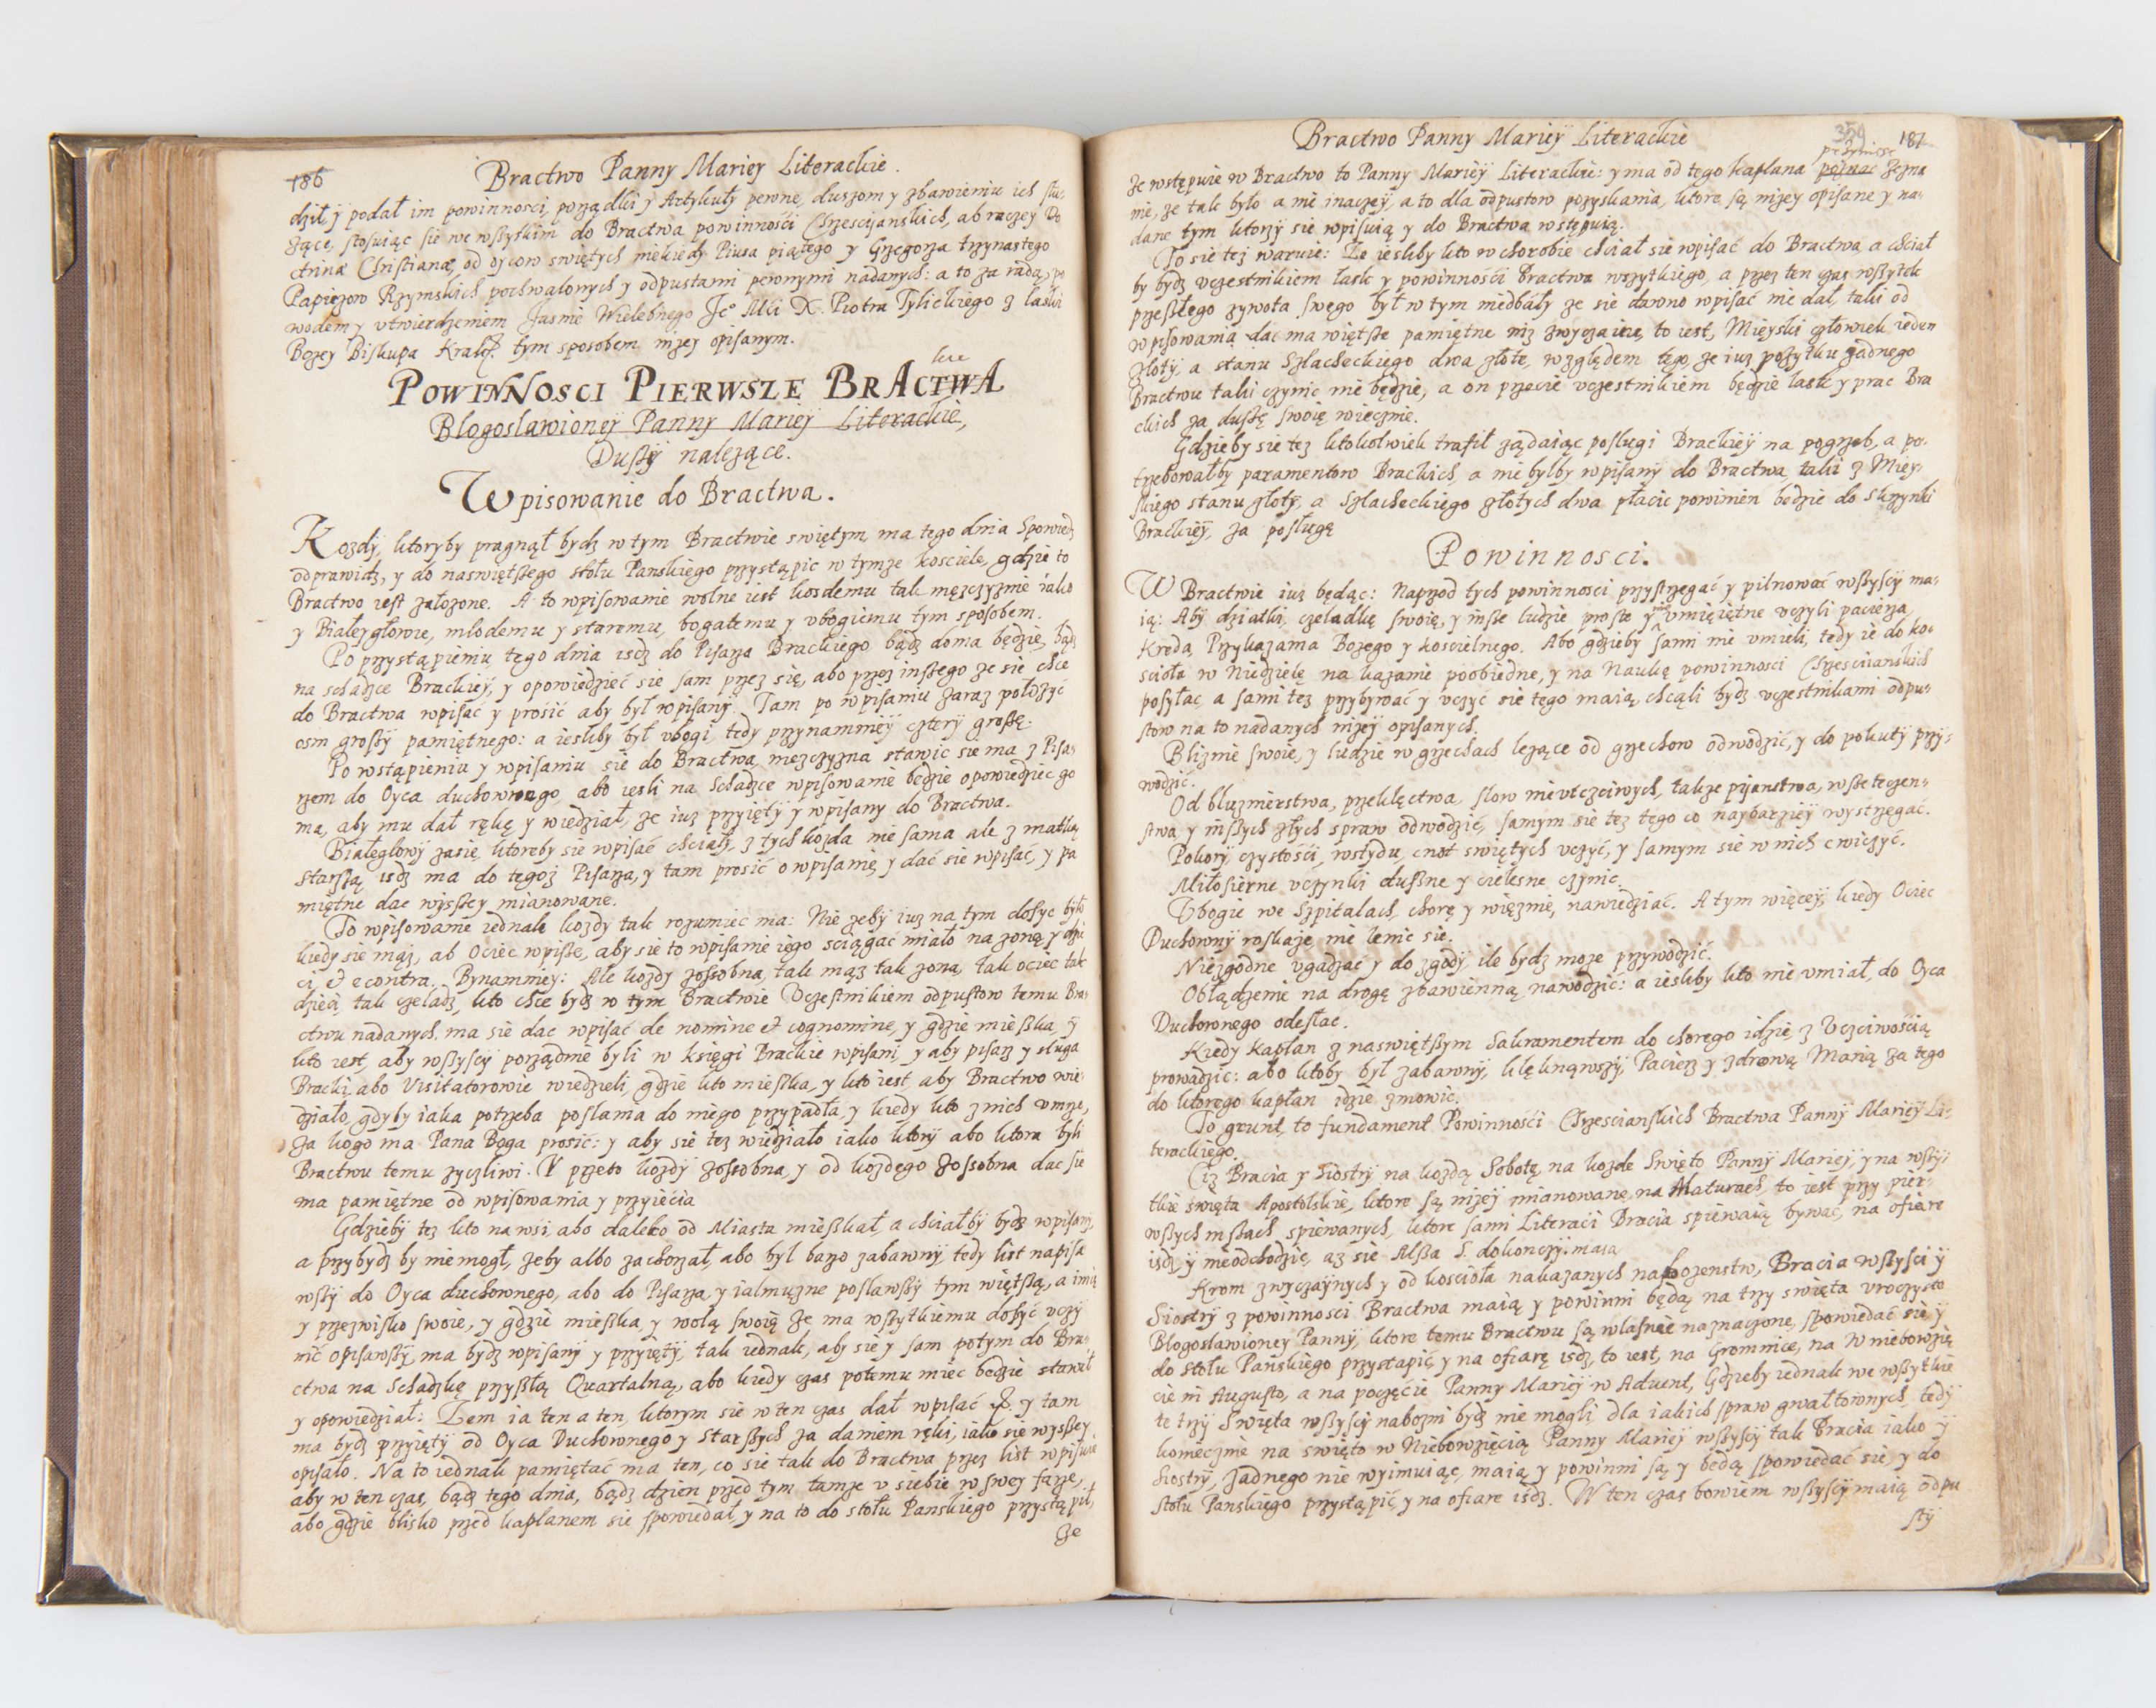 186
Bractwo Panny Mariey Literackie.
dził y podał im powinnosci, porządki y Artykuły pewne, duszom y zbawieniu ich słu-
żące, stosuiąc się we wszytkim do Bractwa powinnośći Chrzescijanskich, ab raczey Do
ctrinæ Christianæ, od oycow swiętych niekiedy Piusa piątego y Grzegorza trzynastego
Papieżow Rzymskich pochwalonych y odpustami pewnymi nadanych: a to za radą, po
wodem y vtwierdzeniem Jasnie Wielebnego Je° Mći X. Piotra Tylickiego z łaski
Bożey Biskupa Krak: tym sposobem niżey opisanym.
POWINNOSCI PIERWSZE BRACTWA
Blogosławioney Panny Mariey Literackie,
Duszy należące.
Wpisowanie do Bractwa.
Kożdy, ktoryby pragnął bydz w tym Bractwie swiętym, ma tego dnia Spowiedz
odprawidz, y do naswiętszego stołu Panskiego przystąpic w tymże kosciele, gdzie to
Bractwo iest założone. A to wpisowanie wolne iest kosdemu tak męzczyznie iako
y Białeygłowie, młodemu y staremu, bogatemu y vbogiemu tym sposobem.
Po przystąpieniu, tego dnia isdz do Pisarza Brackiego bądz doma będzie, bądz
na schadzce Brackiey, y opowiedzieć sie sam przez się, abo przez inszego ze sie chce
do Bractwa wpisać y prosić aby był wpisany. Tam po wpisaniu zaraz położyć
osm groszy pamiętnego: a iesliby był vbogi, tedy przynammiey cztery grosze.
Po wstąpieniu y wpisaniu się do Bractwa, męzczyzna stawic sie ma z Pisa-
rzem do Oyca duchownego, abo iesli na Schadzce wpisowanie będzie opowiedziec go
ma, aby mu dał rękę y wiedział, że iuz przyięty y wpisany do Bractwa.
Białegłowy zasie, ktoreby sie wpisać chciały, z tych kozda nie sama ale z matką
starszą isdz ma do tegoż Pisarza, y tam prosić o wpisanię y dać sie wpisać, y pa
miętne dac wysszey mianowane.
To wpisowanie iednak kozdy tak rozumiec ma: Nie zeby iuz na tym dosyc było
kiedy sie mąz, ab Ociec wpisze, aby sie to wpisanie iego sciągać miało na zonę y dzie
ci, & e contra. Bynammiey: Ale kozdy zossobna, tak mąz tak zona, tak ociec tak
dzieci, tak czeladz, kto chce bydz w tym Bractwie Vczestnikiem odpustow temu Bra-
ctwu nadanych, ma sie dac wpisać de nomine & cognomine, y gdzie mieszka, y
kto iest, aby wszyscy porządnie byli w księgi Brackie wpisani, y aby pisarz y sługa
Bracki, abo Visitatorowie wiedzieli, gdzie kto mieszka, y kto iest, aby Bractwo wie-
działo, gdyby iaka potrzeba posłania do niego przypadła, y kiedy kto z nich vmrze,
za kogo ma Pana Boga prosić: y aby sie tez wiedziało iako ktory abo ktora byli
Bractwu temu zyczliwi. Y przeto kozdy zossobna, y od kozdego zossobna dac sie
ma pamiętne od wpisowania y przyiecia
Gdzieby tez kto na wsi, abo daleko od Miasta mieszkał, a chciałby bydz wpisany,
a przybydz by nie mogł, zeby albo zachorzał, abo byl barzo zabawny, tedy list napisa
wszy do Oyca duchownego, abo do Pisarza, y iałmuzne posławszy tym więtszą, a imię
y przezwisko swoie, y gdzie mieszka, y wolą swoię ze ma wszytkiemu dosyć vczy
nić opisawszy, ma bydz wpisany y przyięty, tak iednak, aby się y sam potym do Bra-
ctwa na Schadzkę przyszłą Quartalną, abo kiedy czas potemu miec będzie stawił
y opowiedział: Zem ia ten a ten, ktorym sie w ten czas dał wpisać &. y tam
ma bydz przyięty od Oyca Duchownego y Starszych za daniem ręki, iako się wysszey
opisało. Na to iednak pamiętać ma ten, co sie tak do Bractwa przez list wpisuie
aby w ten czas, bądz tego dnia, bądz dzien przed tym tamze v siebie w swey farze,
abo gdzie blisko przed kapłanem sie spowiedał, y na to do stołu Panskiego przystąpił,
ze
Bractwo Panny Mariey Literackie
359
187
Ze wstępuie w Bractwo to Panny Mariey Literackie: y ma od tego kapłana
nie, ze tak było a nie inaczey, a to dla odpustow pozyskania, ktore są nizey opisane y na-
dane tym ktorzy sie wpisuią y do Bractwa wstępuią.
To sie tez waruie: Ze iesliby kto w chorobie chciał sie wpisać do Bractwa, a chciał
by bydz vczestnikiem łask y powinności Bractwa wszytkiego, a przez ten czas wszytek
przeszłego zywota swego był w tym niedbały ze sie dawno wpisać nie dał, taki od
wpisowania dać ma więtsze pamiętne niz zwyczaine, to iest, Mieyski człowiek ieden
złoty, a stanu Szlacheckiego dwa złote, względem tego, ze iuz pozytku zadnego
Bractwu taki czynic nie będzie, a on przecie vczestnikiem będzie łask y prac Bra
ckich za duszę swoię wiecznie.
Gdzieby sie tez ktokolwiek trafił ządaiąc posługi Brackiey na pogrzeb, a po-
trzebowałby paramentow Brackich, a nie byłby wpisany do Bractwa, taki z Miey-
skiego stanu złoty, a Szlacheckiego złotych dwa płacic powinien będzie do Skrzynki
Brackiey, za posługę
Powinnosci.
W Bractwie iuz będąc: Naprzod tych powinnosci przystrzegać y pilnować wszyscy ma-
ią: Aby dziatki, czeladkę swoię, y insze ludzie proste y nie vmieiętne vczyli pacierza,
Kreda, Przykazania Bozego y koscielnego. Abo gdzieby sami nie vmieli, tedy ie do ko-
scioła w Niedzielę na kazanie poobiedne, y na Naukę powinnosci Chrzesciianskich
posyłac, a sami tez przybywać y vczyć sie tego maią, chcąli bydz vczestnikami odpu-
stow na to nadanych nizey opisanych.
Bliznie swoie, y ludzie w grzechach lezące od grzechow odwodzić, y do pokuty przy-
wodzić.
Od bluznierstwa, przeklęctwa, słow nievczciwych, takze pijanstwa, wszeteczen-
stwa, y inszych złych spraw odwodzić, samym sie tez tego co naybarziey wystrzegać.
Pokory, czystości, wstydu, cnot swiętych vczyć, y samym sie w nich cwiczyć.
Miłosierne vczynki duszne y cielesne czynic.
Vbogie we Szpitalach, chore y więznie, nawiedziać. A tym więcey, kiedy Ociec
Duchowny roskaże, nie lenic sie.
Niezgodne vgadzać y do zgody, ile bydz może przywodzić.
Obłądzenie na drogę zbawienną nawodzić: a iesliby kto nie vmiał, do Oyca
Duchownego odesłac.
Kiedy kapłan z naswiętszym Sakramentem do chorego idzie, z Vczciwością
prowadzic: abo ktoby był zabawny, klęknąwszy, Pacierz y zdrową Marią za tego
do ktorego kapłan idzie zmowic.
To grunt, to fundament Powinności Chrzescianskich Bractwa Panny Mariey Li-
terackiego.
Ciz Bracia y Siostry na kozdą Sobotę, na kozde Swięto Panny Mariey, y na wszy-
tkie swięta Apostolskie, ktore są nizey mianowane, na Maturach, to iest przy pier-
wszych mszach spiewanych, ktore sami Literaci Bracia spiewaią bywać, na ofiarę
isdz, y nieodchodzic, az sie Msza S. dokonczy, maią
Krom zwyczaynych y od koscioła nakazanych nabozenstw, Bracia wszyscy y
Siostry z powinnosci Bractwa maią y powinni będą, na trzy swięta vroczyste
Blogosławioney Panny, ktore temu Bractwu są własnie naznaczone, spowiedać się, y
do stołu Panskiego przystąpić, y na ofiarę isdz, to iest, na Gromnice, na Wniebowzię
cie in Augusto, a na poczęcie Panny Mariey w Advent, Gdzieby iednak we wszytkie
te trzy Swięta wszyscy nabozni bydz nie mogli dla iakich spraw gwałtownych, tedy
koniecznie na swięto w Niebowzięcią Panny Mariey wszyscy tak Bracia iako y
Siostry, zadnego nie wyimuiąc, maią y powinni są y będą spowiedać sie, y do
stołu Panskiego przystąpić, y na ofiarę isdz. W ten czas bowiem wszyscy maią odpu
sty